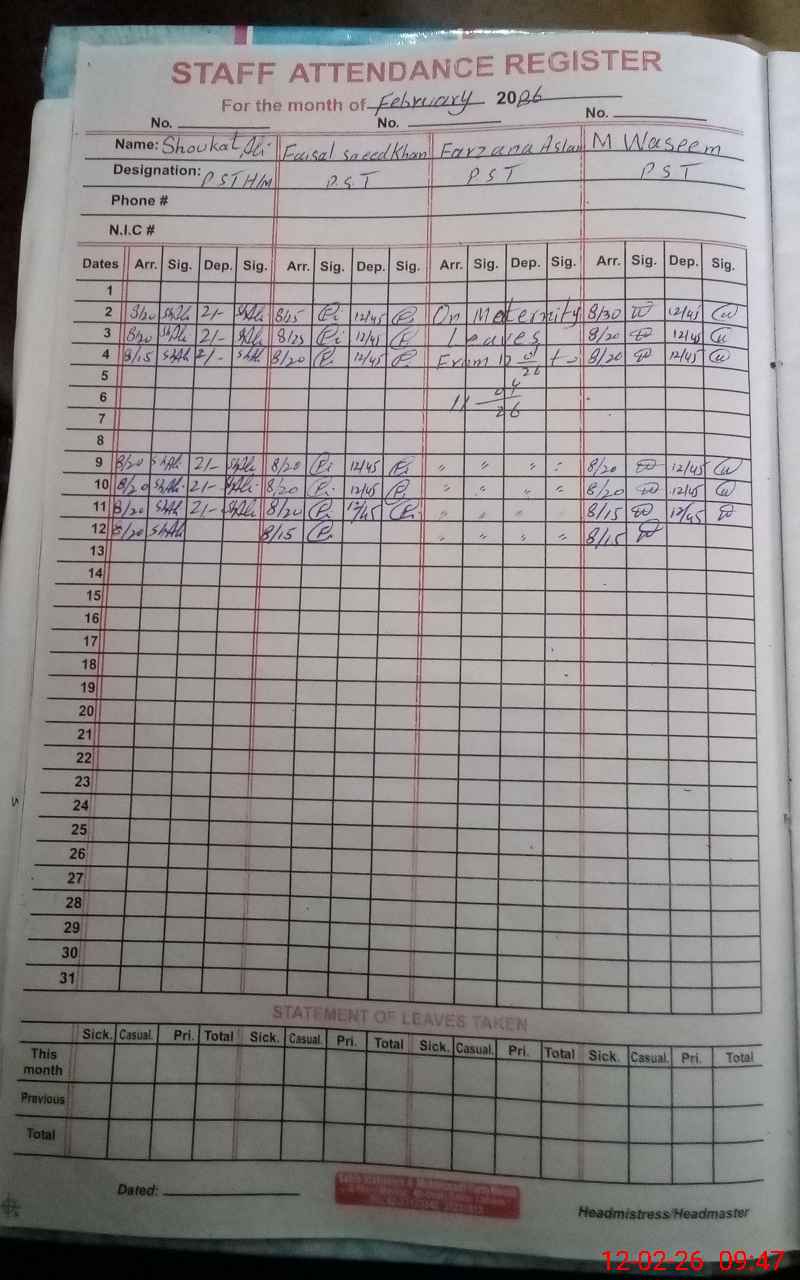 STAFF ATTENDANCE REGISTER
For the month of February 2026
No. No. No.
Name: Shoukat Ali Faisal saeed Khan Farzana Aslam M Waseem
Designation: PST H/M P.S.T PST PST
Phone #
N.I.C #
Dates Arr. Sig. Dep. Sig. Arr. Sig. Dep. Sig. Arr. Sig. Dep. Sig. Arr. Sig. Dep. Sig.
1
2 8/20 ShAli 2/- ShAli 8/15 12/45 On Maternity 8/30 12/45
3 8/20 ShAli 2/- ShAli 8/25 12/45 Leaves 8/20 12/45
4 8/15 ShAli 2/- ShAli 8/20 12/45 From 12 01/26 to 8/20 12/45
5
6 11 04/26
7
8
9 8/20 ShAli 2/- ShAli 8/20 12/45 " " " " 8/20 12/45
10 8/20 ShAli 2/- ShAli 8/20 12/45 " " " " 8/20 12/45
11 8/20 ShAli 2/- ShAli 8/20 12/45 " " " " 8/15 12/45
12 8/20 ShAli 8/15 " " " " 8/15
13
14
15
16
17
18
19
20
21
22
23
24
25
26
27
28
29
30
31
STATEMENT OF LEAVES TAKEN
Sick. Casual. Pri. Total Sick. Casual. Pri. Total Sick. Casual. Pri. Total Sick. Casual. Pri. Total
This month
Previous
Total
Dated:
Headmistress/Headmaster
12-02-26 09:47